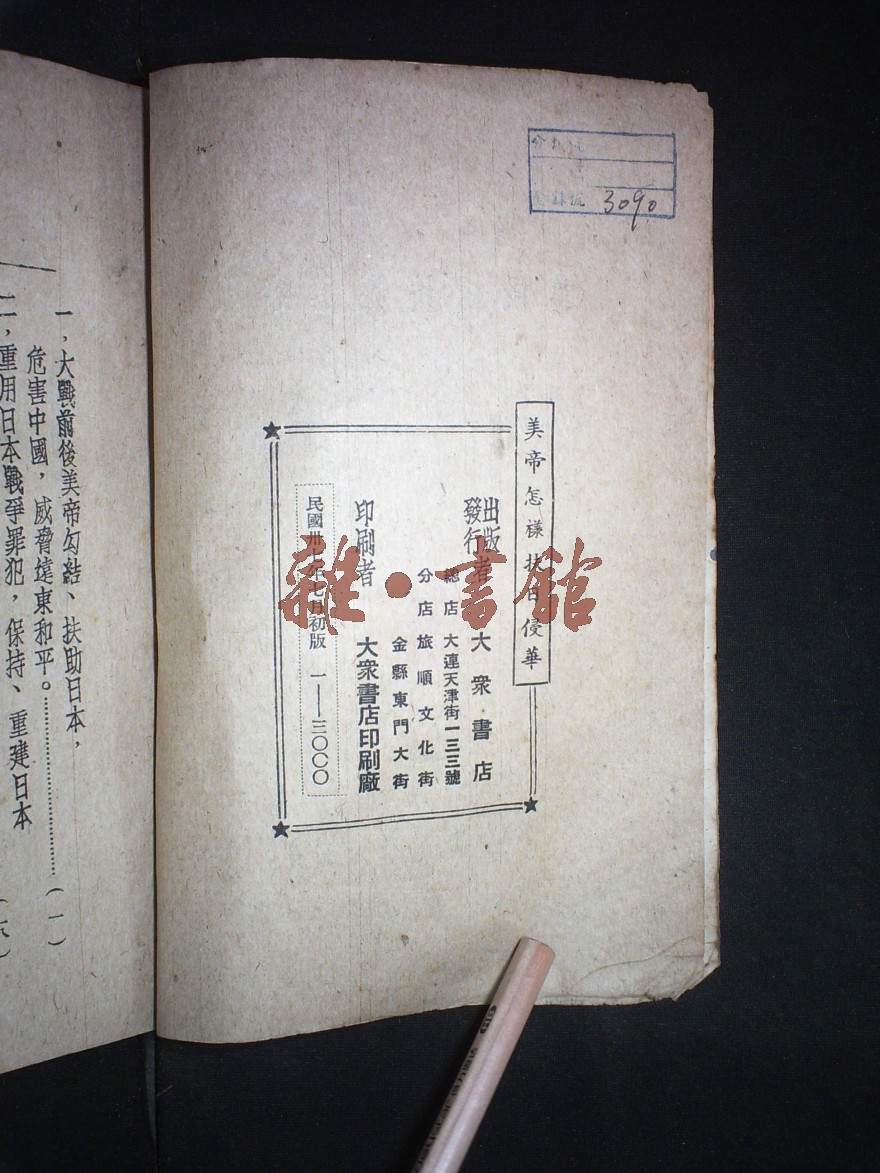 3090
美帝怎樣扶日侵華
出版
發行者
大衆書店
總店 大連天津街一三三號
分店 旅順文化街
金縣東門大街
印刷者
大衆書店印刷廠
民國卅七年七月初版 一——三〇〇〇
雜·書館
一，大戰前後美帝勾結、扶助日本，
危害中國，威脅遠東和平。……………………（一）
二，重用日本戰爭罪犯，保持、重建日本